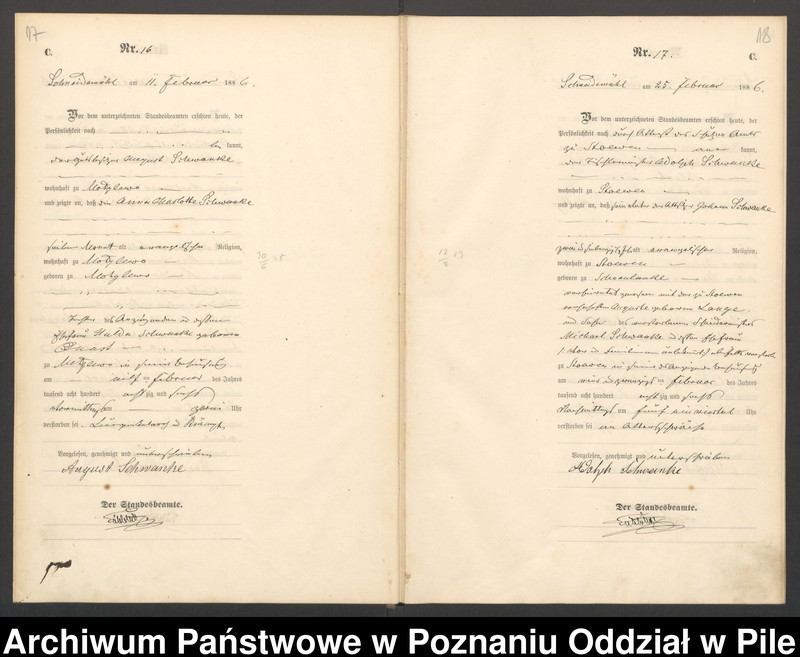 17
C.
Nr. 16
Schneidemühl am 11. Februar 1886.
Vor dem unterzeichneten Standesbeamten erschien heute, der
Persönlichkeit nach
kannt,
August Schwanke
wohnhaft zu Motylewo
und zeigte an, daß Anna Charlotte Schwanke
sieben Monat alt evangelischer Religion,
wohnhaft zu Motylewo
geboren zu Motylewo
Tochter des Anzeigenden und dessen
Ehefrau Hulda Schwanke geborene
zu Motylewo in seiner Behausung
am elften Februar des Jahres
tausend acht hundert achtzig und sechs
Vormittags um zwei Uhr
verstorben sei.
Vorgelesen, genehmigt und unterschrieben
August Schwanke
Der Standesbeamte.
18
Nr. 17.
C.
Schneidemühl am 25. Februar 1886.
Vor dem unterzeichneten Standesbeamten erschien heute, der
Persönlichkeit nach durch Attest des Schulzen Amts
zu Stoewen kannt,
der Tischlermeister Adolph Schwanke
wohnhaft zu Stoewen
und zeigte an, daß sein Vater der Altsitzer Johann Schwanke
alt evangelischer Religion,
wohnhaft zu Stoewen
geboren zu Schoenlanke
verheirathet gewesen mit der zu Stoewen
Auguste geborenen Lange
und Sohn des verstorbenen
Michael Schwanke und dessen Ehefrau
zu Stoewen in seiner des Anzeigenden Behausung
am vier und zwanzigsten Februar des Jahres
tausend acht hundert achtzig und sechs
Nachmittags um fünf ein viertel Uhr
verstorben sei an Altersschwäche
Vorgelesen, genehmigt und unterschrieben
Adolph Schwanke
Der Standesbeamte.
Archiwum Państwowe w Poznaniu Oddział w Pile